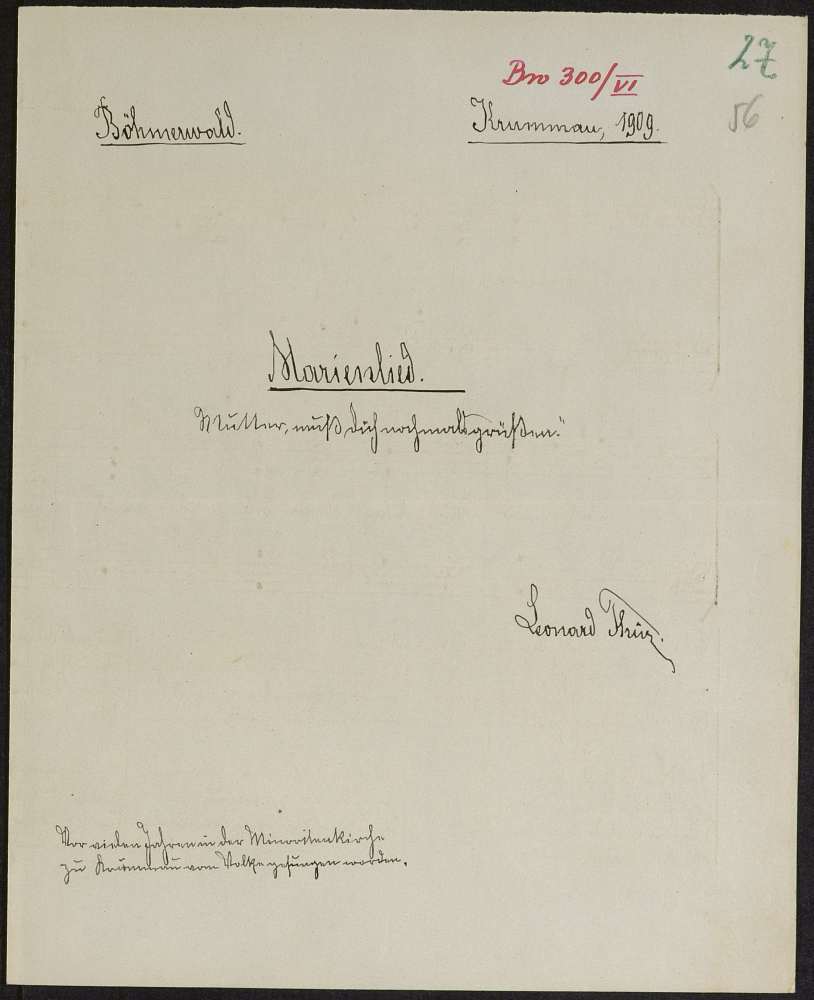 27
Bno 300/VI
56
Böhmerwald.
Krummau, 1909.
Marienlied.
Mutter, muß dich nochmals grüßen."
Leonard
Vor vielen Jahren in der Minoritenkirche
zu Krummau vom Volke gesungen worden.